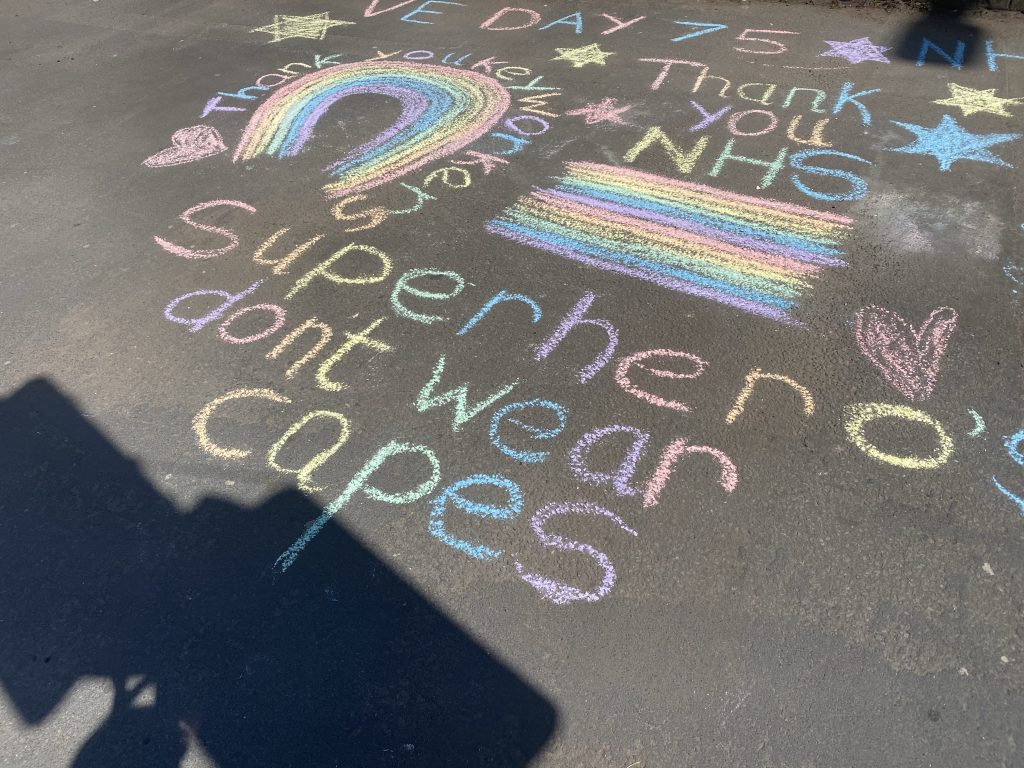 VE DAY 75 NH
Thank you keyworkers
Thank
You
NHS
Superhero's
dont wear
capes